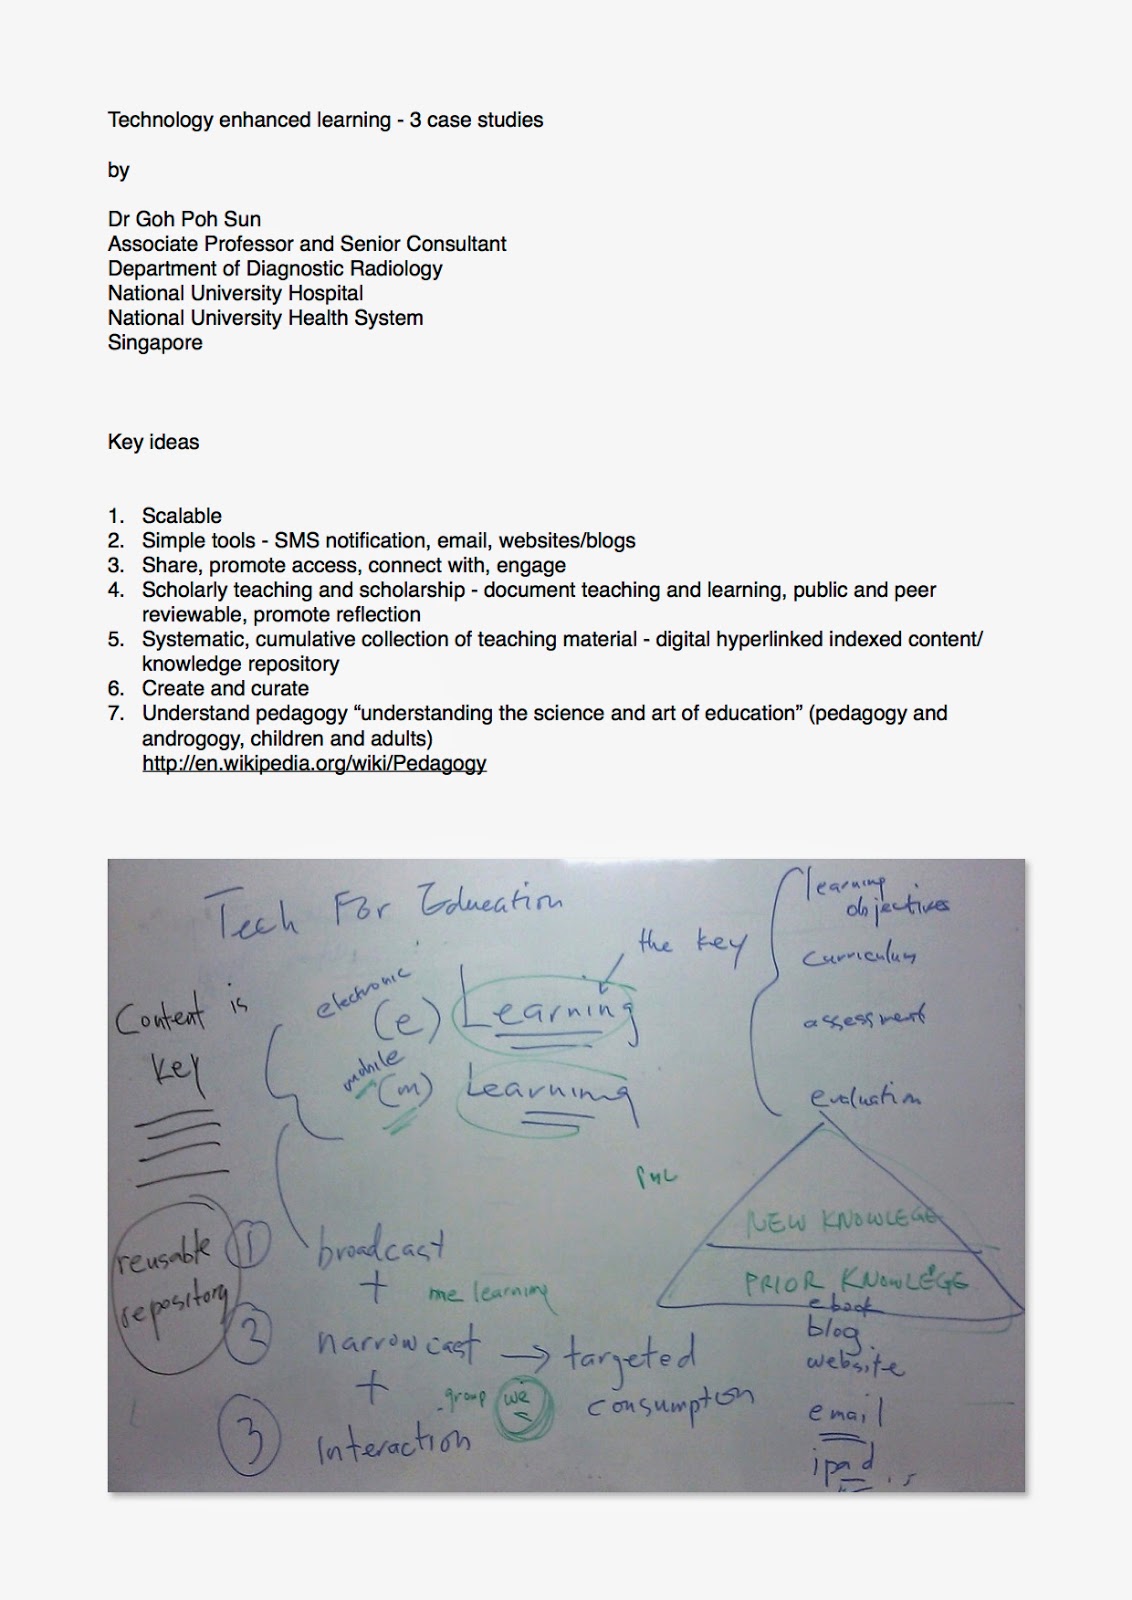 Technology enhanced learning - 3 case studies
by
Dr Goh Poh Sun
Associate Professor and Senior Consultant
Department of Diagnostic Radiology
National University Hospital
National University Health System
Singapore
Key ideas
1. Scalable
2. Simple tools - SMS notification, email, websites/blogs
3. Share, promote access, connect with, engage
4. Scholarly teaching and scholarship - document teaching and learning, public and peer
reviewable, promote reflection
5. Systematic, cumulative collection of teaching material - digital hyperlinked indexed content/
knowledge repository
6. Create and curate
7. Understand pedagogy “understanding the science and art of education” (pedagogy and
androgogy, children and adults)
http://en.wikipedia.org/wiki/Pedagogy
Tech For Education
Content is
key
reusable
repository
electronic
(e) Learning
the key
mobile
(m) Learning
learning
objectives
curriculum
assessment
evaluation
NEW KNOWLEGE
PRIOR KNOWLEGE
1 broadcast
+ me learning
2 narrowcast → targeted
consumption
+ group we
3 Interaction
ebook
blog
website
email
ipad